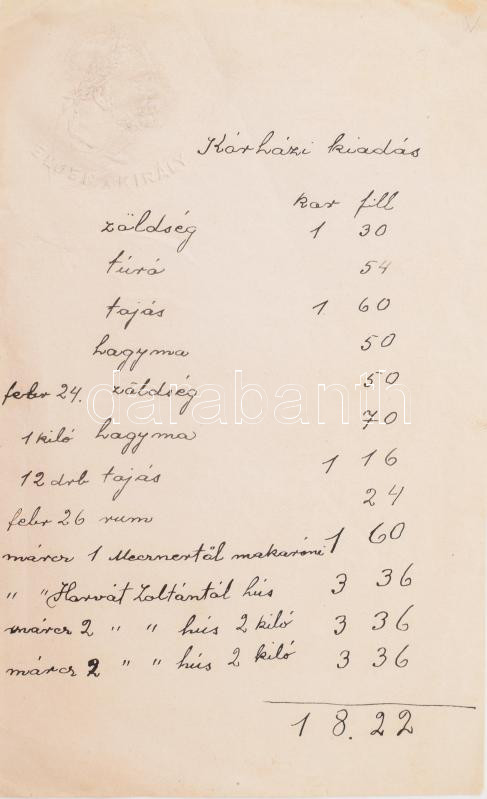 ÉLJEN A KIRÁLY
Kórházi kiadás
kor fill
zöldség 1 30
túró 54
tojás 1 60
hagyma 50
febr 24. zöldség 50
1 kiló hagyma 70
12 drb tojás 1 16
febr 26 rum 24
márcz 1 Mecznertől makaróni 1 60
" " Horvát Zoltántól hús 3 36
márcz 2 " " hús 2 kiló 3 36
márcz 2 " " hús 2 kiló 3 36
18.22
darabanth